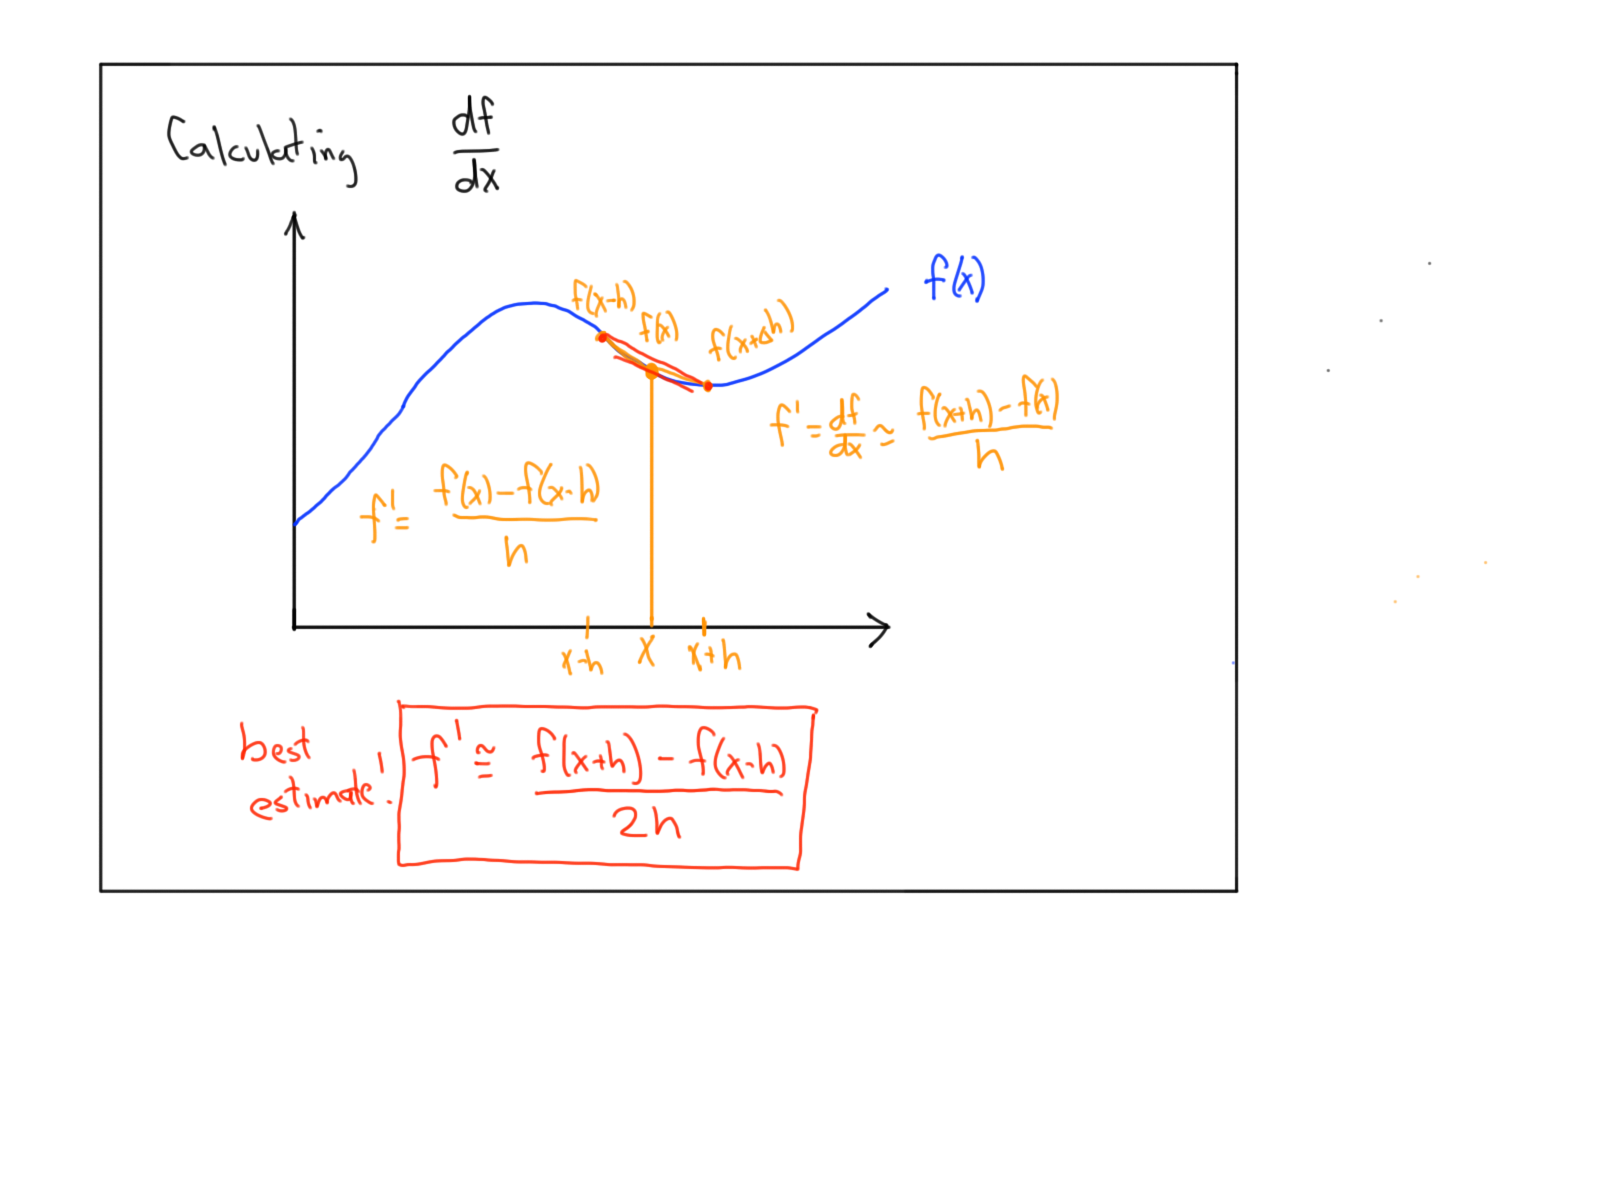 Calculating df/dx
f(x)
f(x-h)
f(x)
f(x+Δh)
f' = df/dx ≃ (f(x+h) - f(x))/h
f' = (f(x) - f(x-h))/h
x-h x x+h
best estimate!
f' ≅ (f(x+h) - f(x-h))/2h